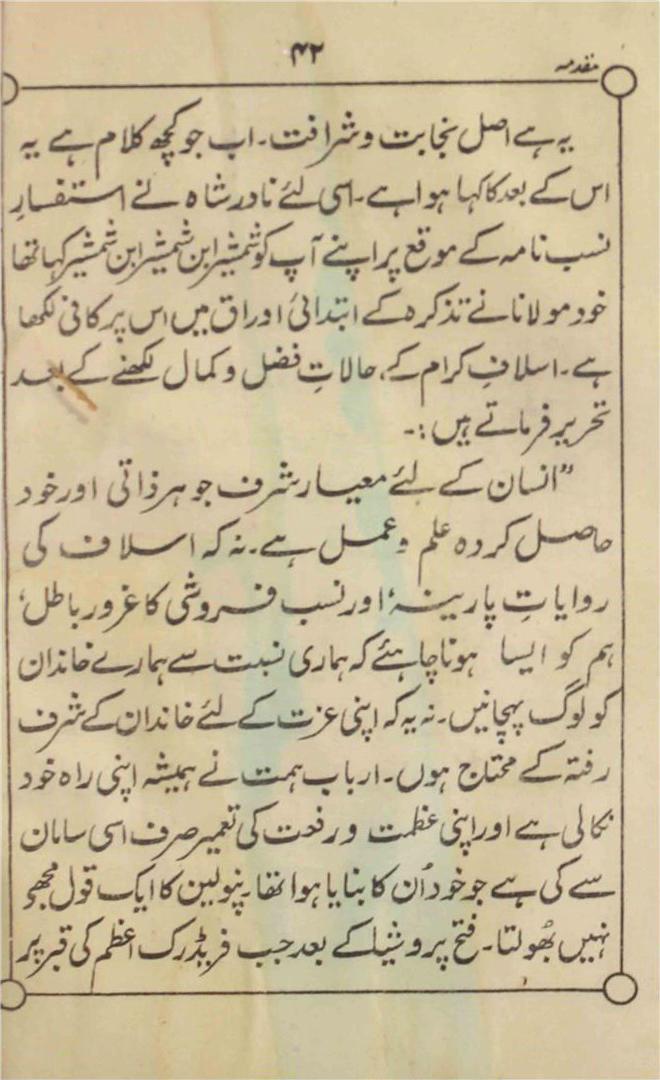 مقدمہ
۴۲
یہ ہے اصل نجابت و شرافت۔ اب جو کچھ کلام ہے یہ
اس کے بعد کا کہا ہوا ہے۔ اسی لئے نادر شاہ نے استفسارِ
نسب نامہ کے موقع پر اپنے آپ کو شمشیر ابن شمشیر ابن شمشیر کہا تھا
خود مولانا نے تذکرہ کے ابتدائی اوراق میں اس پر کافی لکھا
ہے۔ اسلافِ کرام کے، حالاتِ فضل و کمال لکھنے کے بعد
تحریر فرماتے ہیں :۔
”انسان کے لئے معیارِ شرف جوہر ذاتی اور خود
حاصل کردہ علم و عمل ہے۔ نہ کہ اسلاف کی
روایاتِ پارینہ، اور نسب فروشی کا غرور باطل،
ہم کو ایسا ہونا چاہئے کہ ہماری نسبت سے ہمارے خاندان
کو لوگ پہچانیں۔ نہ یہ کہ اپنی عزت کے لئے خاندان کے شرف
رفتہ کے محتاج ہوں۔ ارباب ہمت نے ہمیشہ اپنی راہ خود
نکالی ہے اور اپنی عظمت و رفعت کی تعمیر صرف اسی سامان
سے کی ہے جو خود اُن کا بنایا ہوا تھا۔ نپولین کا ایک قول مجھے
نہیں بھُولتا۔ فتح پروشیا کے بعد جب فریڈرک اعظم کی قبر پر